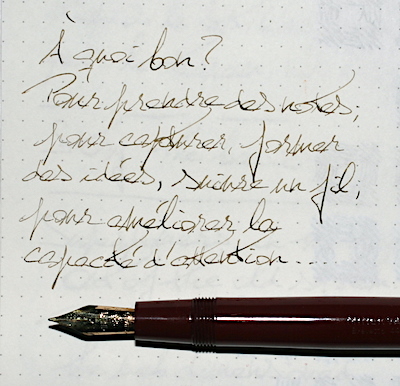 À quoi bon?
Pour prendre des notes,
pour capturer, former
des idées, suivre un fil,
pour améliorer la
capacité d'attention...